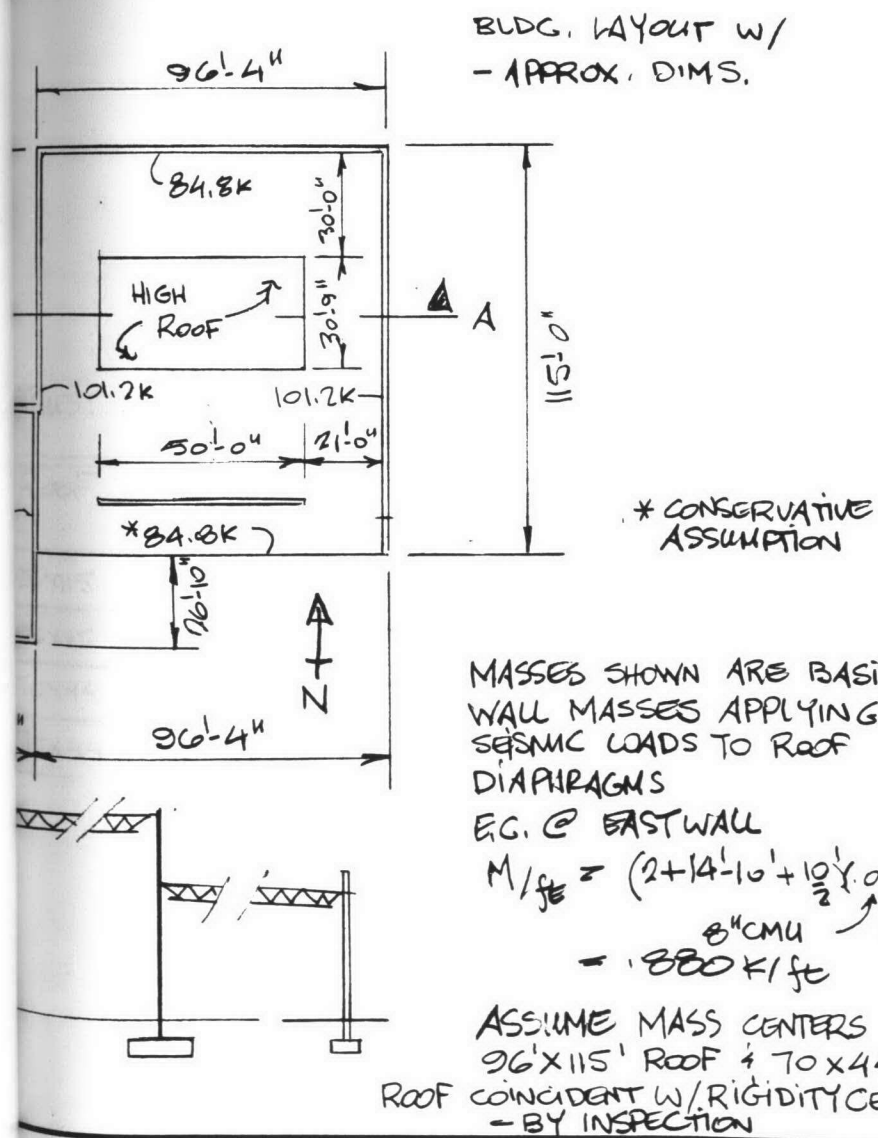 BLDG. LAYOUT W/
- APPROX. DIMS.
96'-4"
84.8K
30'-0"
HIGH
ROOF
30'-9"
A
115'-0"
101.2K
101.2K
50'-0"
21'-0"
* CONSERVATIVE
ASSUMPTION
*84.8K
26'-10"
N
96'-4"
MASSES SHOWN ARE BASI
WALL MASSES APPLYING
SEISMIC LOADS TO ROOF
DIAPHRAGMS
E.G. @ EAST WALL
M/ft = (2+14'-10'+10/2)(.0
8" CMU
= .880 K/ft
ASSUME MASS CENTERS
96'X115' ROOF & 70X44
ROOF COINCIDENT W/ RIGIDITY CE
- BY INSPECTION